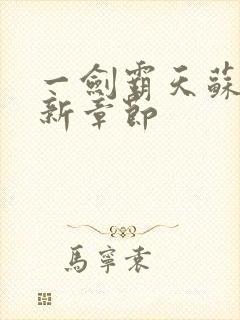 一劍霸天蘇
新章節
馬寧袁